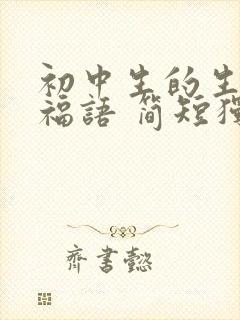 初中生的生
福語 简短獨
齊書懿